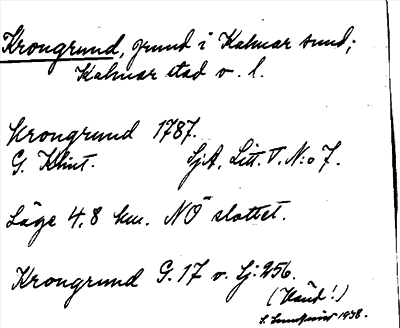 Krongrund, grund i Kalmar sund;
Kalmar stad o. l.
Krongrund 1787.
G. Klint. SjA, Litt. T. N:o 7.
Läge 4,8 km. NÖ slottet.
Krongrund G. 17 o. Sj: 256.
(Känd!)
S. 1938.